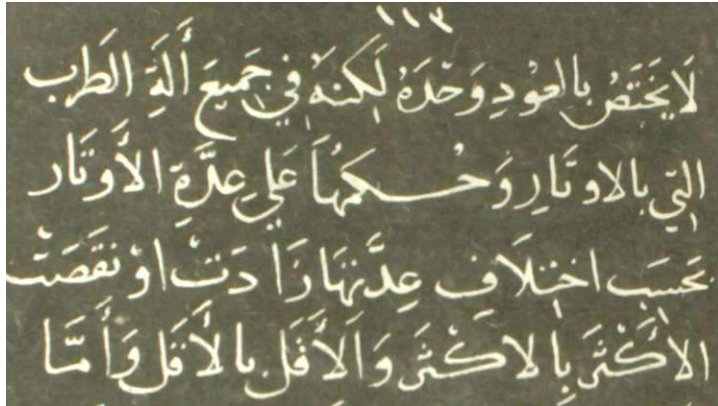 ١١٣
لَا يَخْتَصُّ بِالعُوْدِ وَحْدَهُ لَكِنهُ فِي جَمِيعَ أَلَةِ الطَرَب
التِي بالاوتَارِ وَحُكمُهَا عَلَى عِدَّةِ الأَوتَار
بَحَسَبِ اختِلَافِ عِدَّتِهَا زَادَتْ اوْ نَقَصَتْ
الأَكْثَرَ بِالاكْثَرَ وَالأَقَل بالأَقَل وَأَمَّا